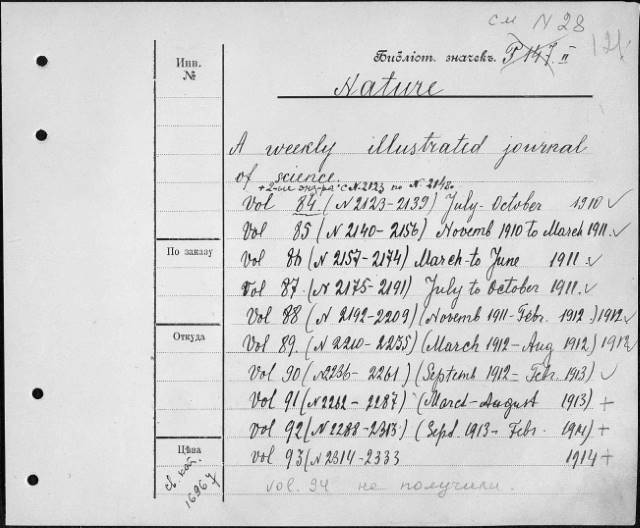 см N 28
121
Библіот. значекъ. P 147. II
Nature
Инв.
№
A weekly illustrated journal
of science.
+2-ые экз-ра: с N. 2123 по N. 2148.
Vol 84 (N 2123-2139) July-October 1910 ✓
Vol 85 (N 2140-2156) Novemb 1910 to March 1911. ✓
Vol 86 (N 2157-2174) March-to June 1911. ✓
По заказу
Vol 87. (N 2175-2191) July to October 1911. ✓
Vol 88 (N 2192-2209) (Novemb 1911-Febr. 1912.) 1912 ✓
Откуда
Vol 89. (N 2210-2235) (March 1912-Aug 1912) 1912
Vol 90 (N 2236-2261) (Septemb 1912-Febr. 1913) ✓
Vol 91 (N 2262-2287) (March-August 1913) +
Vol 92 (N 2288-2313) (Sept. 1913-Febr. 1914) +
Цѣна
Vol 93 (N 2314-2333 1914 +
св. кат.
16967
vol. 94 не получили.